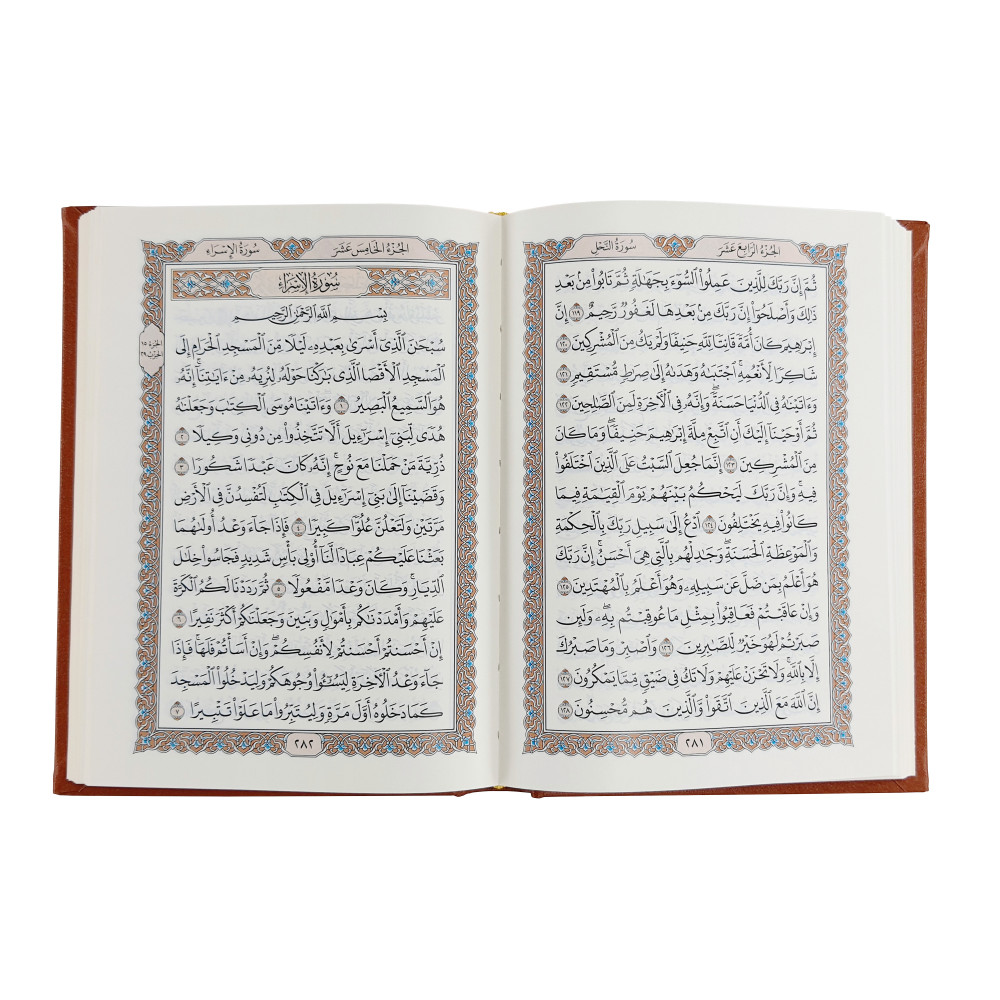 الجزء الرابع عشر
سورة النحل
ثُمَّ إِنَّ رَبَّكَ لِلَّذِينَ عَمِلُوا۟ ٱلسُّوٓءَ بِجَهَٰلَةٍ ثُمَّ تَابُوا۟ مِنۢ بَعْدِ
ذَٰلِكَ وَأَصْلَحُوٓا۟ إِنَّ رَبَّكَ مِنۢ بَعْدِهَا لَغَفُورٌ رَّحِيمٌ ١١٩ إِنَّ
إِبْرَٰهِيمَ كَانَ أُمَّةً قَانِتًا لِّلَّهِ حَنِيفًا وَلَمْ يَكُ مِنَ ٱلْمُشْرِكِينَ ١٢٠
شَاكِرًا لِّأَنْعُمِهِ ۚ ٱجْتَبَىٰهُ وَهَدَىٰهُ إِلَىٰ صِرَٰطٍ مُّسْتَقِيمٍ ١٢١
وَءَاتَيْنَٰهُ فِى ٱلدُّنْيَا حَسَنَةً ۖ وَإِنَّهُۥ فِى ٱلْءَاخِرَةِ لَمِنَ ٱلصَّٰلِحِينَ ١٢٢
ثُمَّ أَوْحَيْنَآ إِلَيْكَ أَنِ ٱتَّبِعْ مِلَّةَ إِبْرَٰهِيمَ حَنِيفًا ۖ وَمَا كَانَ
مِنَ ٱلْمُشْرِكِينَ ١٢٣ إِنَّمَا جُعِلَ ٱلسَّبْتُ عَلَى ٱلَّذِينَ ٱخْتَلَفُوا۟
فِيهِ ۚ وَإِنَّ رَبَّكَ لَيَحْكُمُ بَيْنَهُمْ يَوْمَ ٱلْقِيَٰمَةِ فِيمَا
كَانُوا۟ فِيهِ يَخْتَلِفُونَ ١٢٤ ٱدْعُ إِلَىٰ سَبِيلِ رَبِّكَ بِٱلْحِكْمَةِ
وَٱلْمَوْعِظَةِ ٱلْحَسَنَةِ ۖ وَجَٰدِلْهُم بِٱلَّتِى هِىَ أَحْسَنُ ۚ إِنَّ رَبَّكَ
هُوَ أَعْلَمُ بِمَن ضَلَّ عَن سَبِيلِهِۦ ۖ وَهُوَ أَعْلَمُ بِٱلْمُهْتَدِينَ ١٢٥
وَإِنْ عَاقَبْتُمْ فَعَاقِبُوا۟ بِمِثْلِ مَا عُوقِبْتُم بِهِۦ ۖ وَلَئِن
صَبَرْتُمْ لَهُوَ خَيْرٌ لِّلصَّٰبِرِينَ ١٢٦ وَٱصْبِرْ وَمَا صَبْرُكَ
إِلَّا بِٱللَّهِ ۚ وَلَا تَحْزَنْ عَلَيْهِمْ وَلَا تَكُ فِى ضَيْقٍ مِّمَّا يَمْكُرُونَ ١٢٧
إِنَّ ٱللَّهَ مَعَ ٱلَّذِينَ ٱتَّقَوا۟ وَّٱلَّذِينَ هُم مُّحْسِنُونَ ١٢٨
٢٨١
الجزء الخامس عشر
سورة الإسراء
سُورَةُ الْإِسْرَاءِ
بِسْمِ ٱللَّهِ ٱلرَّحْمَٰنِ ٱلرَّحِيمِ
سُبْحَٰنَ ٱلَّذِىٓ أَسْرَىٰ بِعَبْدِهِۦ لَيْلًا مِّنَ ٱلْمَسْجِدِ ٱلْحَرَامِ إِلَى
ٱلْمَسْجِدِ ٱلْأَقْصَا ٱلَّذِى بَٰرَكْنَا حَوْلَهُۥ لِنُرِيَهُۥ مِنْ ءَايَٰتِنَآ ۚ إِنَّهُۥ
هُوَ ٱلسَّمِيعُ ٱلْبَصِيرُ ١ وَءَاتَيْنَا مُوسَى ٱلْكِتَٰبَ وَجَعَلْنَٰهُ
هُدًى لِّبَنِىٓ إِسْرَٰٓءِيلَ أَلَّا تَتَّخِذُوا۟ مِن دُونِى وَكِيلًا ٢
ذُرِّيَّةَ مَنْ حَمَلْنَا مَعَ نُوحٍ ۚ إِنَّهُۥ كَانَ عَبْدًا شَكُورًا ٣
وَقَضَيْنَآ إِلَىٰ بَنِىٓ إِسْرَٰٓءِيلَ فِى ٱلْكِتَٰبِ لَتُفْسِدُنَّ فِى ٱلْأَرْضِ
مَرَّتَيْنِ وَلَتَعْلُنَّ عُلُوًّا كَبِيرًا ٤ فَإِذَا جَآءَ وَعْدُ أُولَىٰهُمَا
بَعَثْنَا عَلَيْكُمْ عِبَادًا لَّنَآ أُو۟لِى بَأْسٍ شَدِيدٍ فَجَاسُوا۟ خِلَٰلَ
ٱلدِّيَارِ ۚ وَكَانَ وَعْدًا مَّفْعُولًا ٥ ثُمَّ رَدَدْنَا لَكُمُ ٱلْكَرَّةَ
عَلَيْهِمْ وَأَمْدَدْنَٰكُم بِأَمْوَٰلٍ وَبَنِينَ وَجَعَلْنَٰكُمْ أَكْثَرَ نَفِيرًا ٦
إِنْ أَحْسَنتُمْ أَحْسَنتُمْ لِأَنفُسِكُمْ ۖ وَإِنْ أَسَأْتُمْ فَلَهَا ۚ فَإِذَا
جَآءَ وَعْدُ ٱلْءَاخِرَةِ لِيَسُۥٓـُٔوا۟ وُجُوهَكُمْ وَلِيَدْخُلُوا۟ ٱلْمَسْجِدَ
كَمَا دَخَلُوهُ أَوَّلَ مَرَّةٍ وَلِيُتَبِّرُوا۟ مَا عَلَوْا۟ تَتْبِيرًا ٧
الجزء ١٥
الحزب ٢٩
٢٨٢